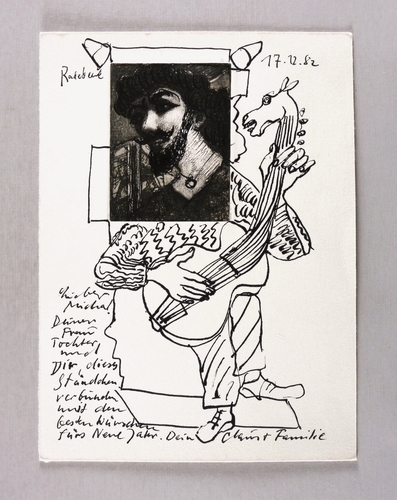 Radebeul
17.12.82
Lieber
Michael
Deiner
Frau
Tochter
und
Dir dieses
Ständchen
verbunden
mit den
besten Wünschen
fürs Neue Jahr. Dein Claus + Familie